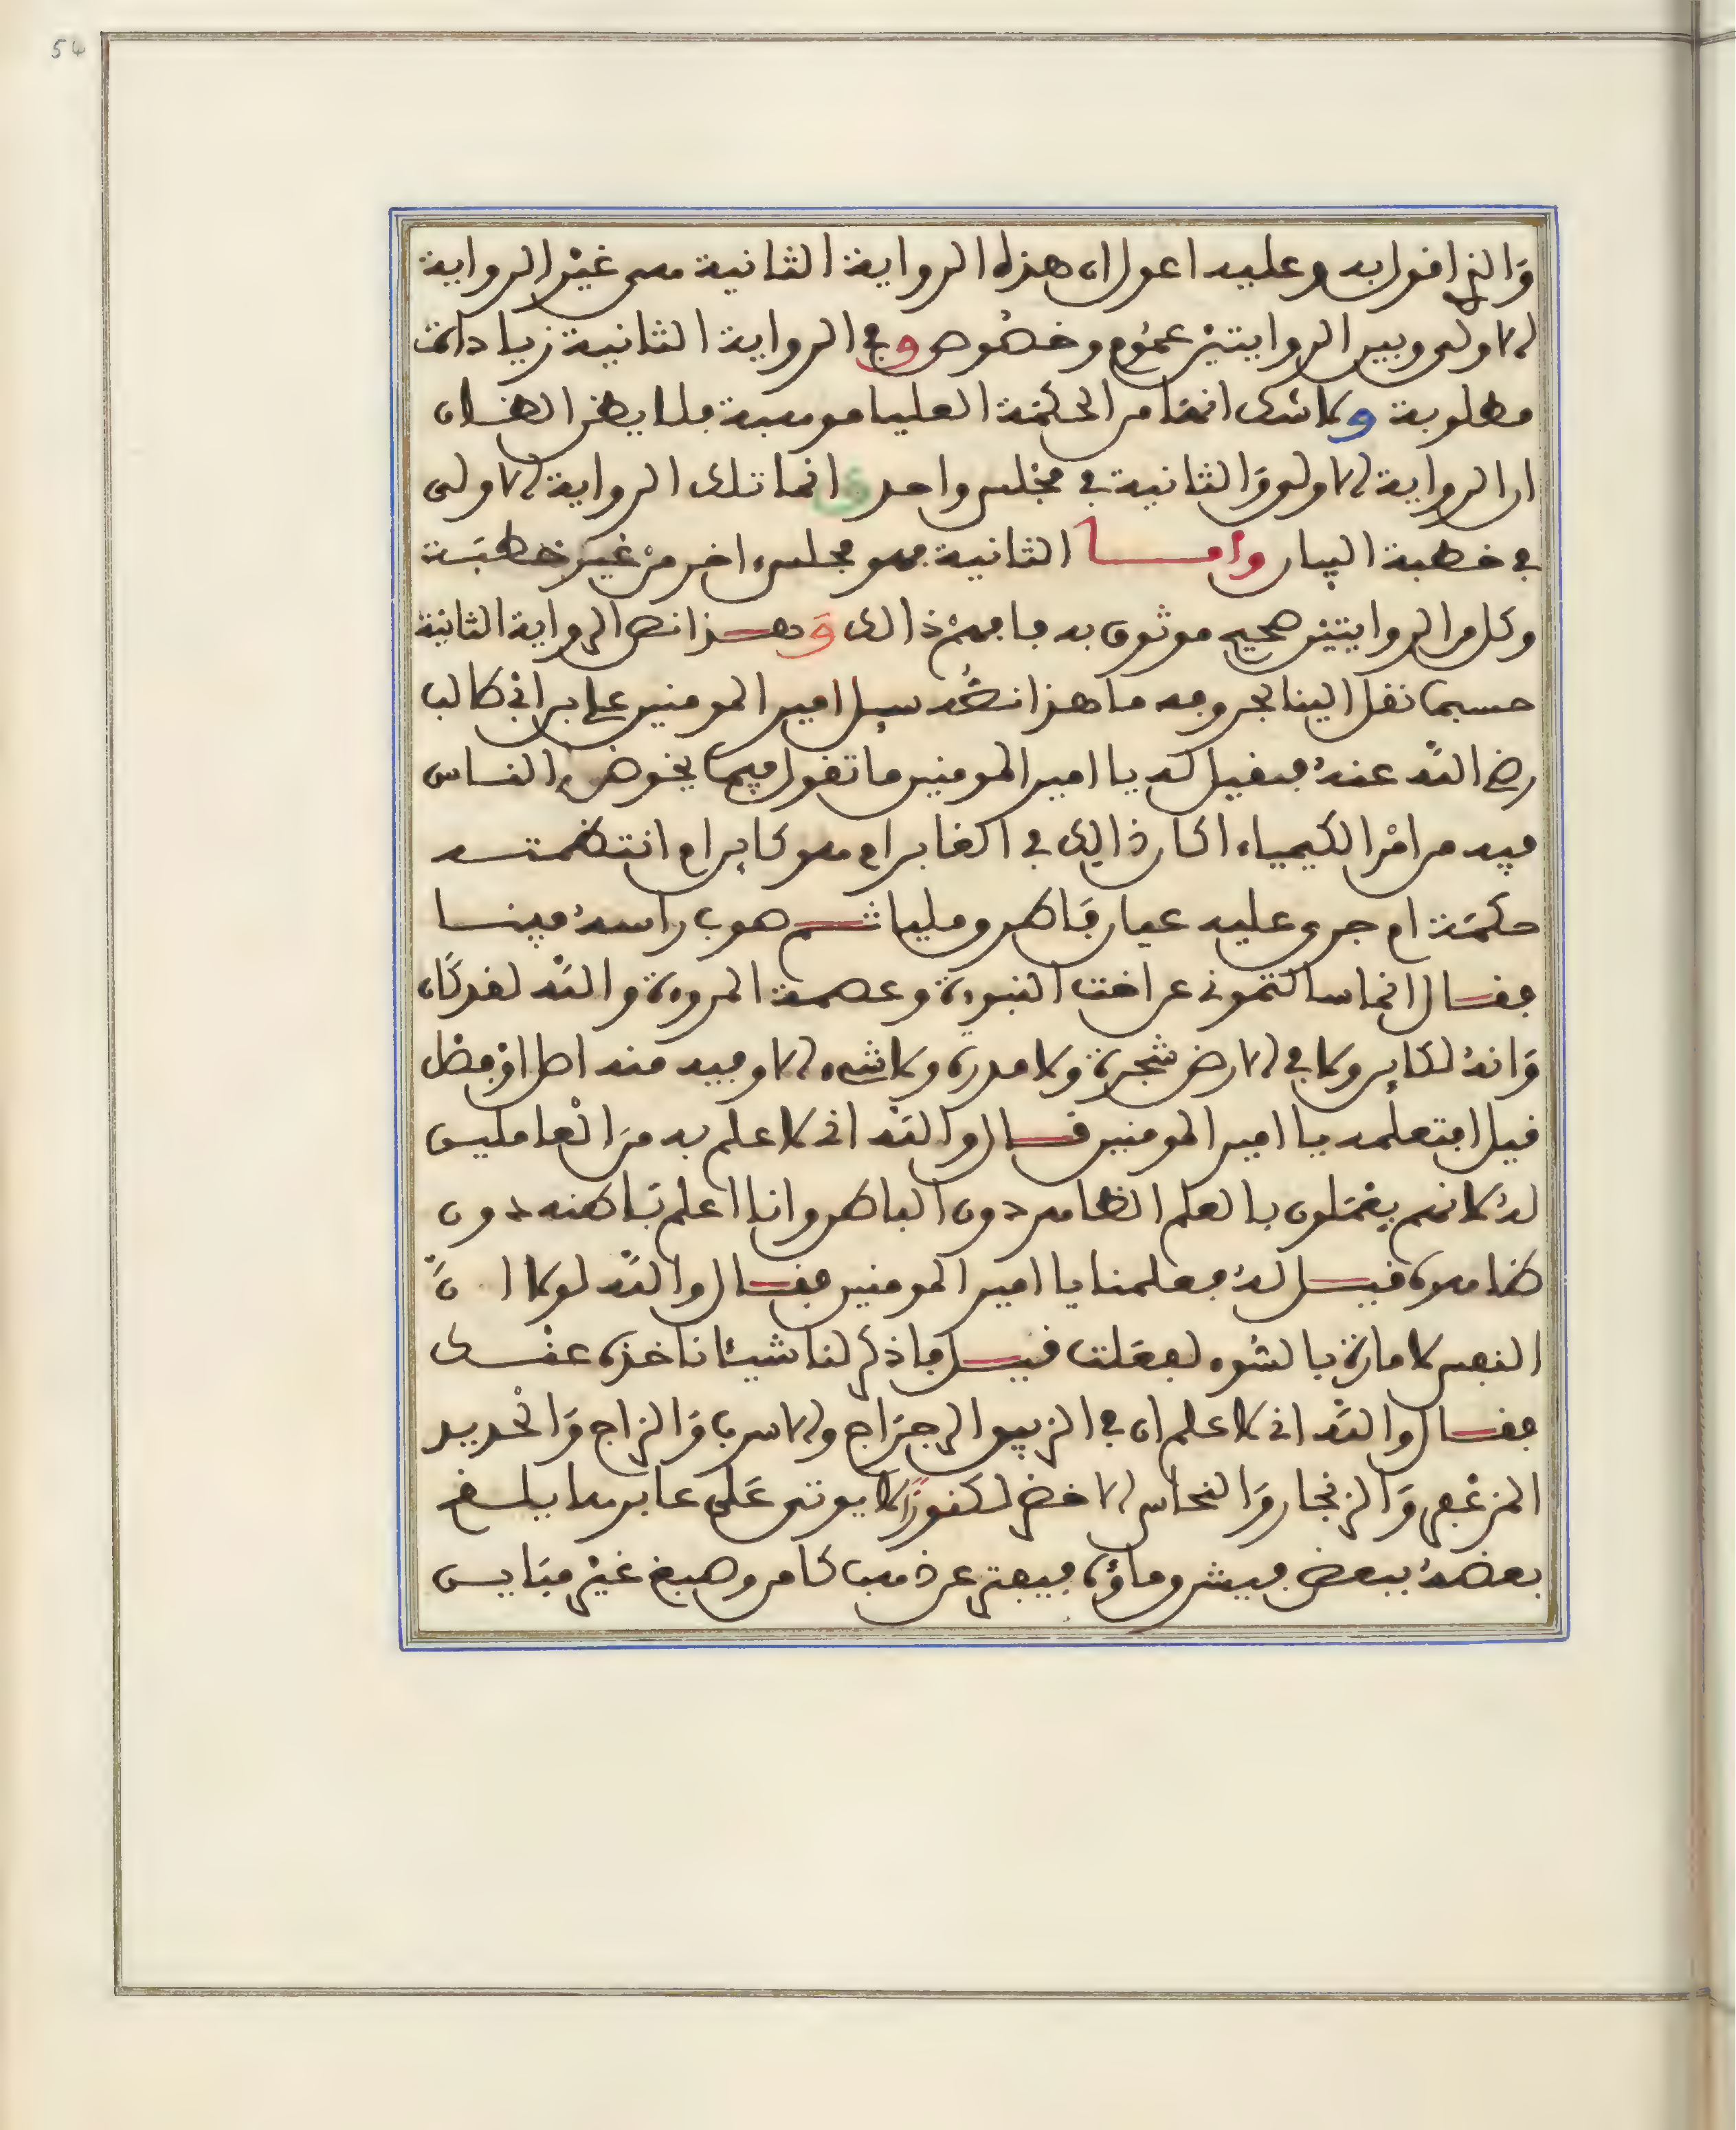 54
وَالذي اقول به وعليه اعول ان هذه الرواية الثانية هي غيْر الرواية
الاولى وبين الروايتيْن عمُوم وخصُوص وفي الرواية الثانية زيادات
مطلوبة ولا شك انها من الحكمَة العليا موهبة فلا يظن الظان
ان الرواية الاولى وَالثانية في مجْلس واحد وانما تلك الرواية الاولى
في خطبة البيان واما الثانية فهو مجلس اخر منْ غيْر خطبَة
وكل من الروايتيْن صحيح موثوق به فافهمْ ذالك وَهذا نص الرواية الثانية
حسبما نقل الينا بحروفه ما هذا نصُّه سيل امير المومنين علي بن ابي طالب
رضي اللَّه عنهُ فقيل له يا امير المومنين ما تقول فيما يخوض الناس
فيه من امْر الكيمياء اكان ذالك في الغابر ام هو كاين ام انتظمته
حكمَة ام جرى عليه عيان فَاطرو مليا ثم صوب راسهُ فينا
فقال انما سالتموني عن اخت النبوءة وعصمة المروءة واللَّه لقد كَان
وَانهُ لكاين وما في الارض شجرة ولا مدرة ولا شيء الا وفيه منه اصل اوْ فصْل
قيل افتعلمه يا امير المومنين قال واللَّه اني لاعلم به منَ الْعاملين
لهُ لانهم يعْمَلون بالعلم الظاهر دون الباطن وانا اعلم بَاطنه دون
ظاهره قيل لهُ فعلمنا يا امير المومنين فقال واللَّه لولا انَّ
النفس لامارة بالسُوء لفعَلت قيل فاذكر لنا شيئا ناخذه عنْك
فقال واللَّه اني لاعلم ان في الزيبق الرجرَاج والاسرب وَالزاج وَالْحديد
المزعْفر وَالزنجار وَالنحاس الاخضر لكنوزًا لا يوتى عَلى غابرها يلقح
بعضهُ ببعض فيشرق ماؤه فيفتر عن ذهب كامن وصبغ غيْر مبَاين